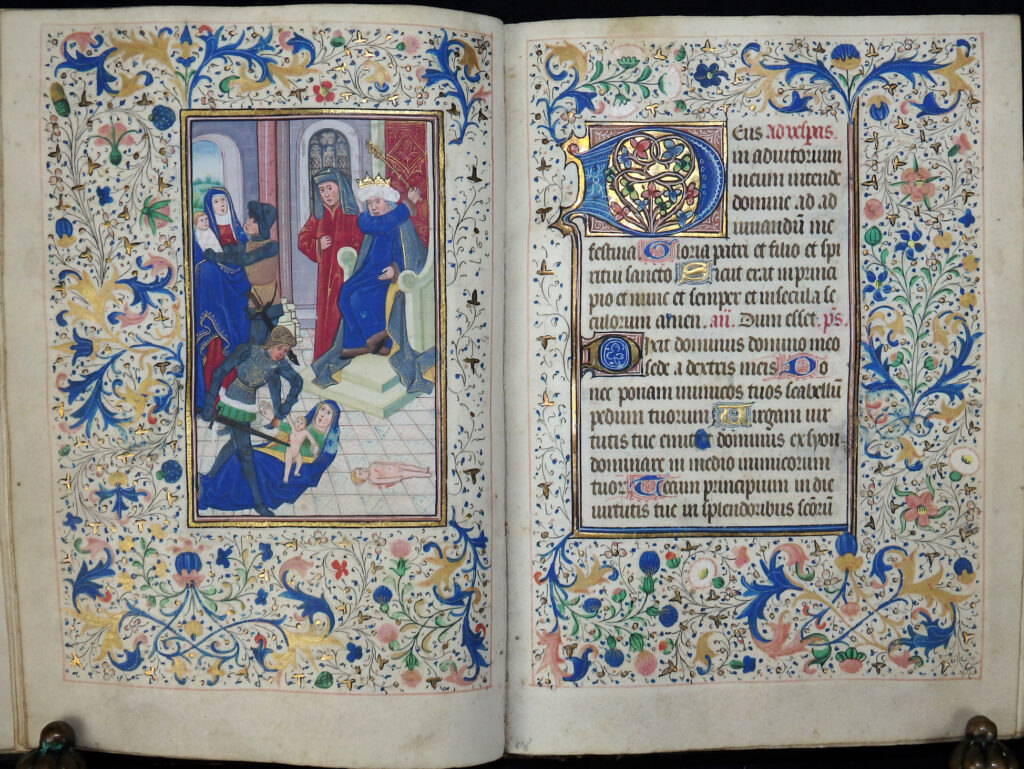 Deus ad vesp̃as.
in adiutorium
meum intende
domine ad ad
iuuandũ me
festina Gloria patri et filio et spi
ritui sancto Sicut erat in princi
pio et nunc et semper et in secula se
culorum amen. añ. Dum esset. ps.
Dixit dominus domino meo
sede a dextris meis Do
nec ponam inimicos tuos scabellũ
pedum tuorum Uirgam uir
tutis tue emittet dominus ex syon
dominare in medio inimicorum
tuor Tecum principium in die
uirtutis tue in splendoribus scorũ